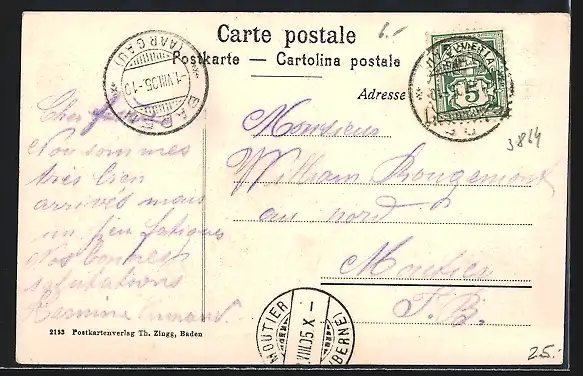 Carte postale
Postkarte — Cartolina postale
Adresse
6.-
BADEN
(AARGAU)
1.VIII.05.-10
5
3864
Cher
Nous sommes
très bien
arrivés mais
un peu fatigués
Nos bonnes
salutations
Monsieur
William Rougemont
au nord
Moutier
J. B.
MOUTIER
VIII.05 X-
(BERNE)
2153 Postkartenverlag Th. Zingg, Baden
25.-